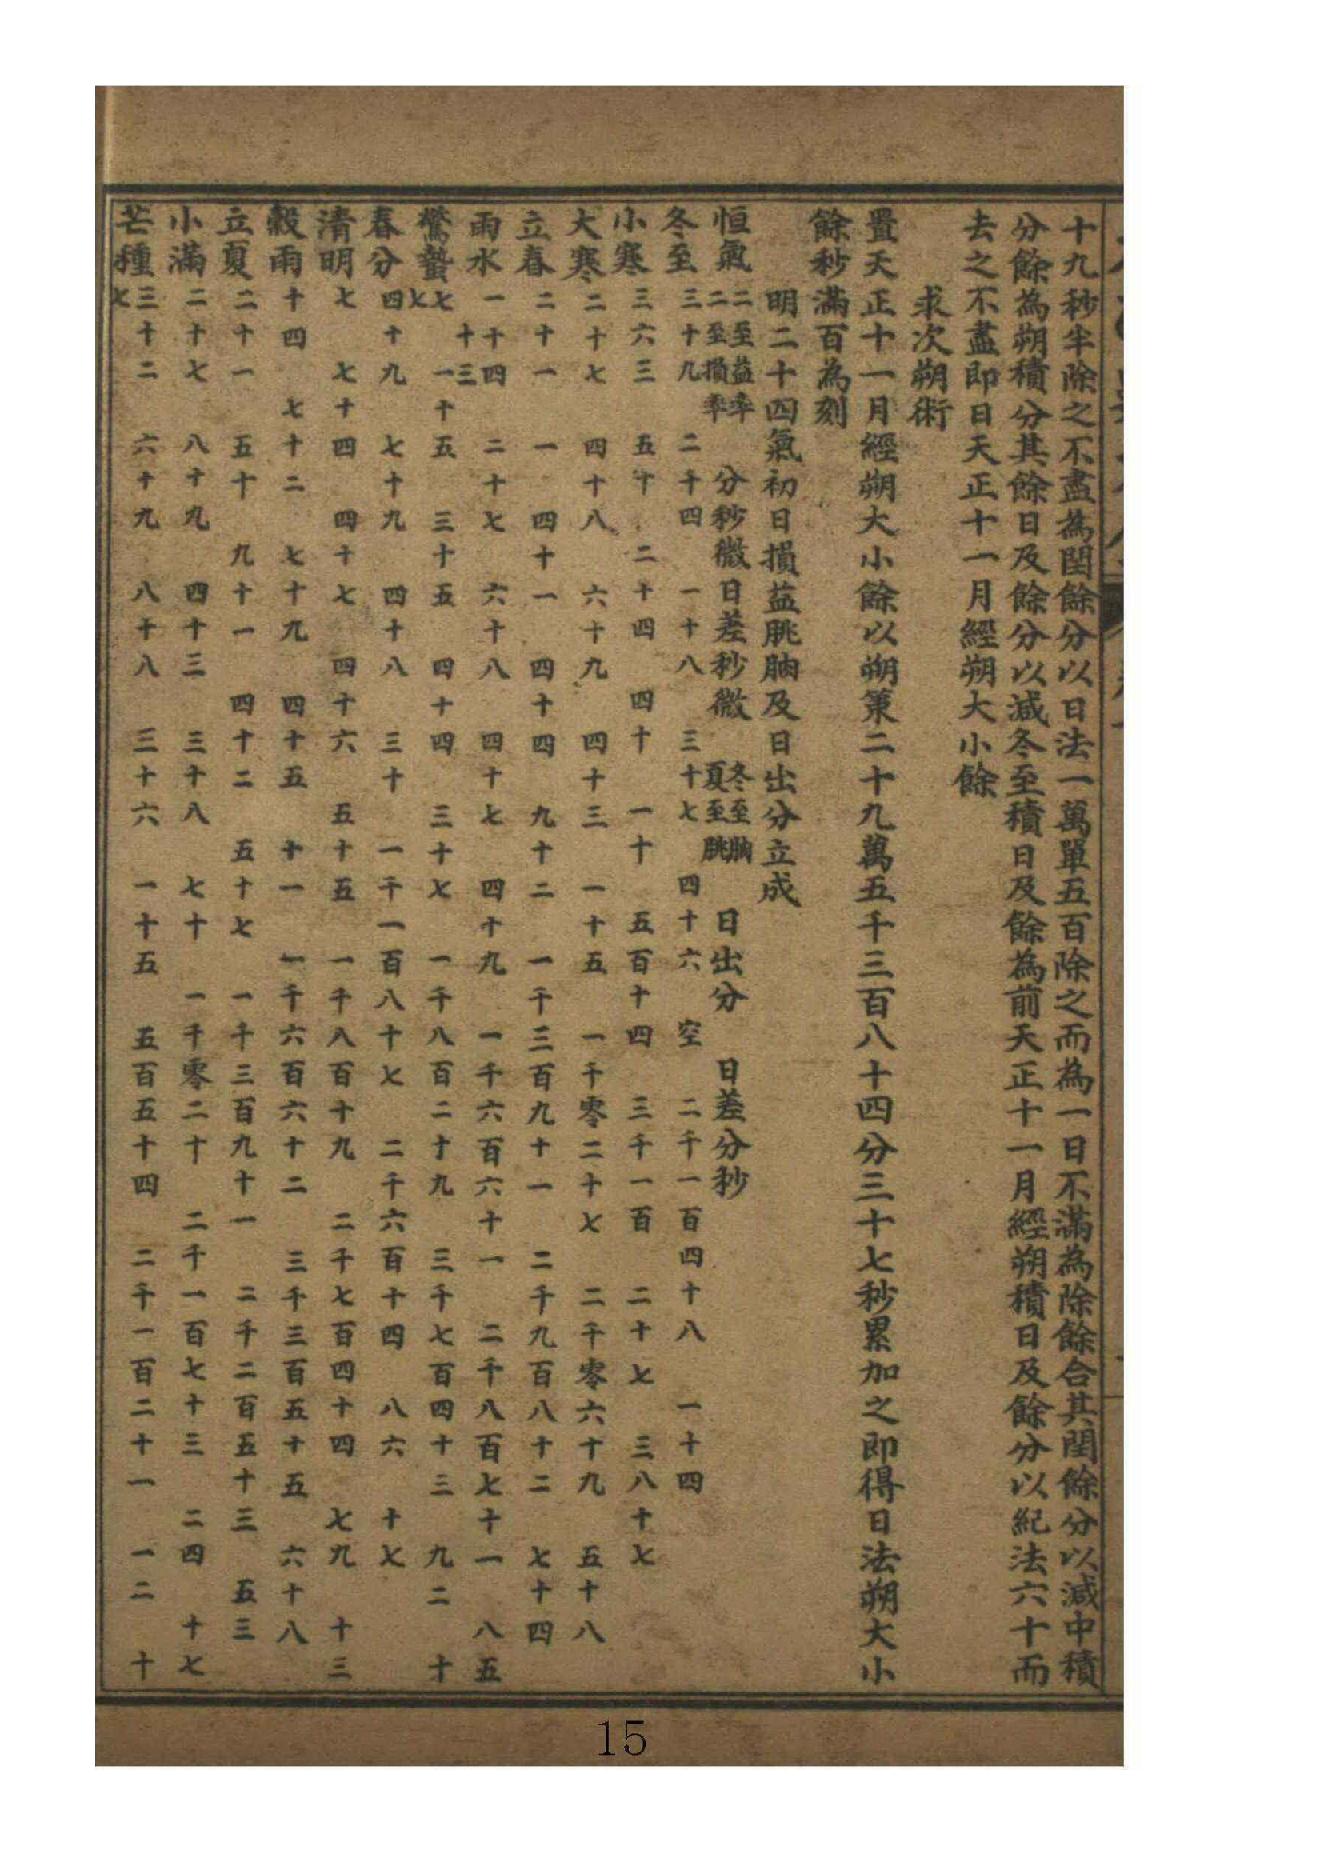 十九秒半除之不盡為閏餘分以日法一萬單五百除之而為一日不滿為除餘合其閏餘分以減中積
分餘為朔積分其餘日及餘分以減冬至積日及餘為前天正十一月經朔積日及餘分以紀法六十而
去之不盡即日天正十一月經朔大小餘
求次朔術
置天正十一月經朔大小餘以朔策二十九萬五千三百八十四分三十七秒累加之即得日法朔大小
餘秒滿百為刻
明二十四氣初日損益朓朒及日出分立成
恒氣 二至益率 二至損率 分秒微日差秒微 冬至朒 夏至朓 日出分 日差分秒
冬至 三十九 二千四 一十八 三十七 四十六 空 二千一百四十八 一十四
小寒 三六三 五十 二十四 四十 一十 五百十四 三千一百 二十七 三八十七
大寒 二十七 四十八 六十九 四十三 一十五 一千零二十七 二千零六十九 五十八
立春 二十一 一 四十一 四十四 九十二 一千三百九十一 二千九百八十二 七十四
雨水 一十四 十三 二十七 六十八 四十七 四十九 一千六百六十一 二千八百七十一 八五
驚蟄 七 七 一十五 三十五 四十四 三十七 一千八百二十九 三千七百四十三 九二 十
春分 四十九 七十九 四十八 三十 一千一百八十七 二千六百十四 八六 十七
清明 七 七十四 四十七 四十六 五十五 一千八百十九 二千七百四十四 七九 十三
穀雨 十四 七十二 七十九 四十五 十一 一千六百六十二 三千三百五十五 六十八
立夏 二十一 五十 九十一 四十二 五十七 一千三百九十一 二千二百五十三 五三
小滿 二十七 八十九 四十三 三十八 七十 一千零二十 二千一百七十三 二四 十七
芒種 三十二 七 六十九 八十八 三十六 一十五 五百五十四 二千一百二十一 一二 十
15